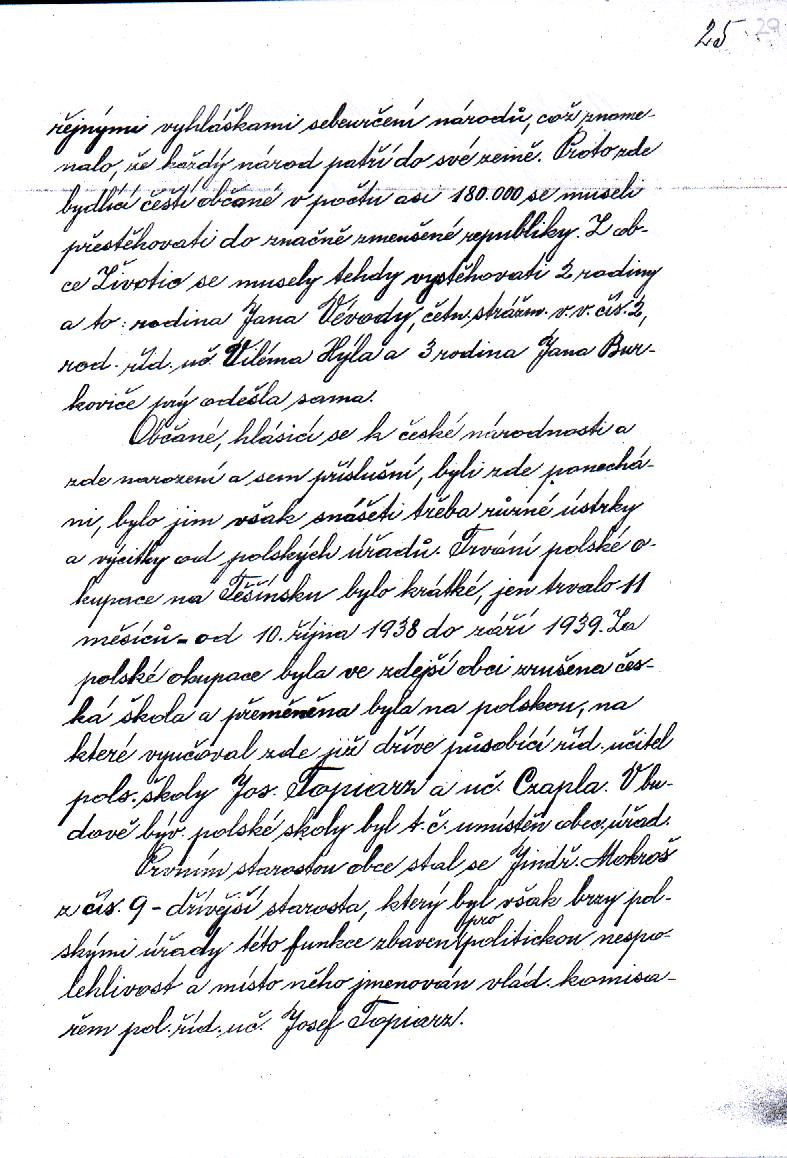 25 29
řejnými vyhláškami sebeurčení národů, což zname-
nalo, že každý národ patří do své země. Proto zde
bydlící čeští občané v počtu asi 180.000 se museli
přestěhovati do značně zmenšené republiky. Z ob-
ce Životic se musely tehdy vystěhovati 2 rodiny
a to: rodina Jana Vévody, četn. strážm. v.v. čís. 2,
rod. říd. uč. Viléma Hýla a 3 rodina Jana Bur-
koviče prý odešla sama.
Občané, hlásící se k české národnosti a
zde narození a sem příslušní, byli zde ponechá-
ni, bylo jim však snášeti třeba různé ústrky
a výčitky od polských úřadů. Trvání polské o-
kupace na Těšínsku bylo krátké, jen trvalo 11
měsíců - od 10. října 1938 do září 1939. Za
polské okupace byla ve zdejší obci zrušena čes-
ká škola a přeměněna byla na polskou, na
které vyučoval zde již dříve působící říd. učitel
pols. školy Jos. Topiarz a uč. Czapla. V bu-
dově býv. polské školy byl t.č. umístěn obec. úřad.
Prvním starostou obce stal se Jindř. Mokroš
z čís. 9 - dřívější starosta, který byl však brzy pol-
skými úřady této funkce zbaven pro politickou nespo-
lehlivost a místo něho jmenován vlád. komisa-
řem pol. říd. uč. Josef Topiarz.